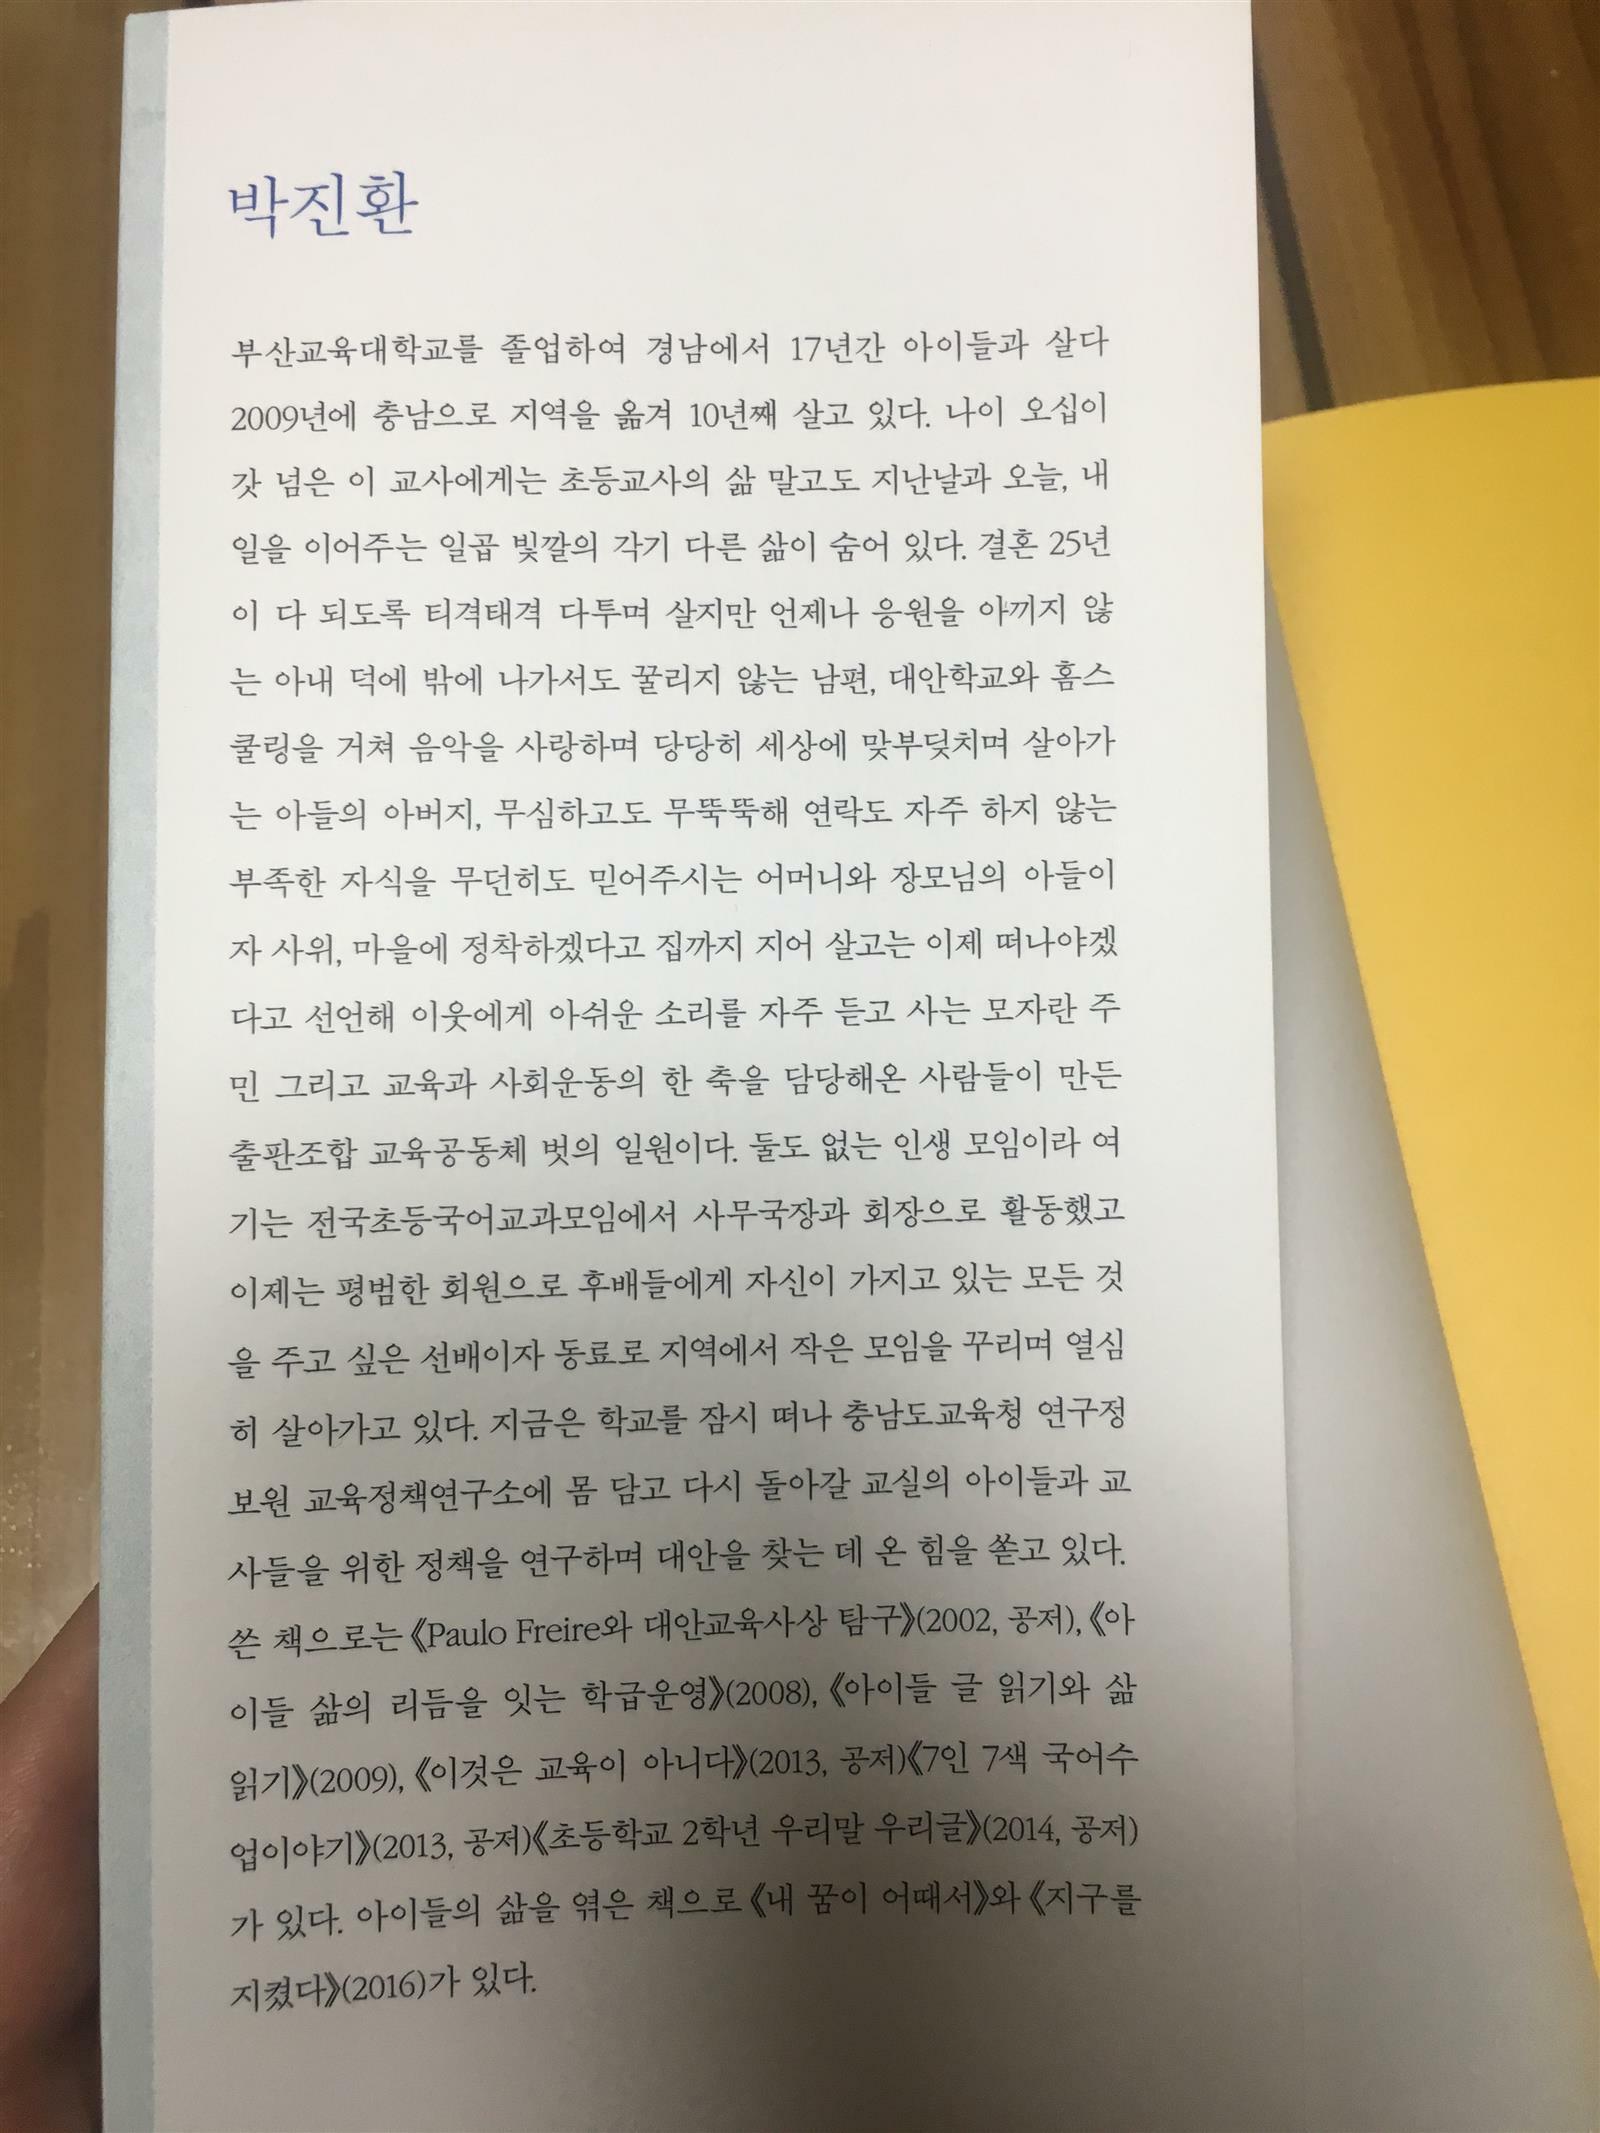 박진환
부산교육대학교를 졸업하여 경남에서 17년간 아이들과 살다
2009년에 충남으로 지역을 옮겨 10년째 살고 있다. 나이 오십이
갓 넘은 이 교사에게는 초등교사의 삶 말고도 지난날과 오늘, 내
일을 이어주는 일곱 빛깔의 각기 다른 삶이 숨어 있다. 결혼 25년
이 다 되도록 티격태격 다투며 살지만 언제나 응원을 아끼지 않
는 아내 덕에 밖에 나가서도 꿀리지 않는 남편, 대안학교와 홈스
쿨링을 거쳐 음악을 사랑하며 당당히 세상에 맞부딪치며 살아가
는 아들의 아버지, 무심하고도 무뚝뚝해 연락도 자주 하지 않는
부족한 자식을 무던히도 믿어주시는 어머니와 장모님의 아들이
자 사위, 마을에 정착하겠다고 집까지 지어 살고는 이제 떠나야겠
다고 선언해 이웃에게 아쉬운 소리를 자주 듣고 사는 모자란 주
민 그리고 교육과 사회운동의 한 축을 담당해온 사람들이 만든
출판조합 교육공동체 벗의 일원이다. 둘도 없는 인생 모임이라 여
기는 전국초등국어교과모임에서 사무국장과 회장으로 활동했고
이제는 평범한 회원으로 후배들에게 자신이 가지고 있는 모든 것
을 주고 싶은 선배이자 동료로 지역에서 작은 모임을 꾸리며 열심
히 살아가고 있다. 지금은 학교를 잠시 떠나 충남도교육청 연구정
보원 교육정책연구소에 몸 담고 다시 돌아갈 교실의 아이들과 교
사들을 위한 정책을 연구하며 대안을 찾는 데 온 힘을 쏟고 있다.
쓴 책으로는 《Paulo Freire와 대안교육사상 탐구》(2002, 공저), 《아
이들 삶의 리듬을 잇는 학급운영》(2008), 《아이들 글 읽기와 삶
읽기》(2009), 《이것은 교육이 아니다》(2013, 공저)《7인 7색 국어수
업이야기》(2013, 공저)《초등학교 2학년 우리말 우리글》(2014, 공저)
가 있다. 아이들의 삶을 엮은 책으로 《내 꿈이 어때서》와 《지구를
지켰다》(2016)가 있다.